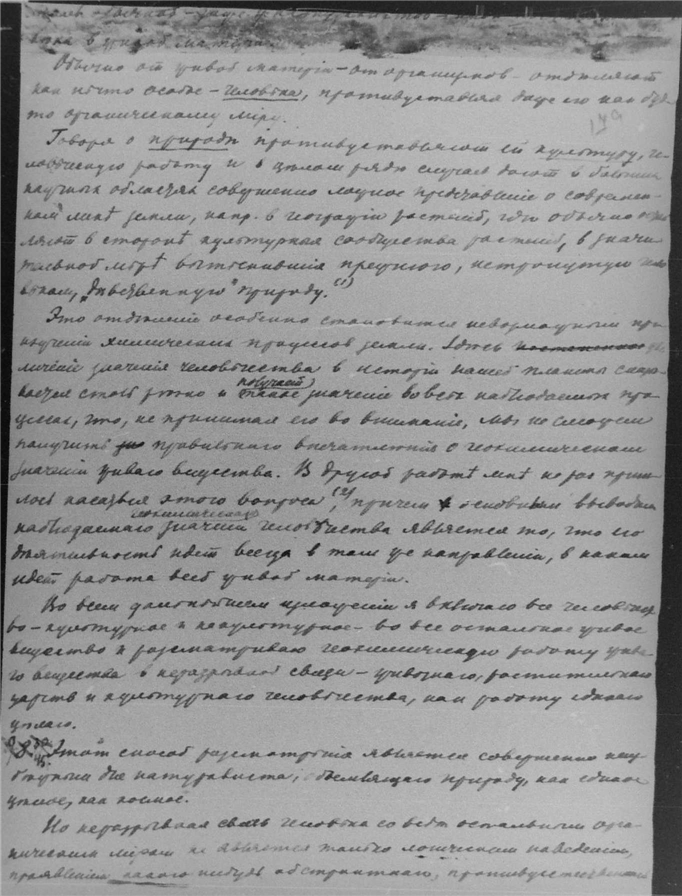 вѣка в живой матеріи.
Обычно от живой матеріи – от организмов – отдѣляют
как нѣчто особое – человѣка, противуставляя даже его как буд-
то органическому міру.
179
Говоря о природѣ противуставляют ей культуру, че-
ловѣческую работу и в цѣлом рядѣ случаев дают в больших
научных областях совершенно ложное представленіе о современ-
ном ликѣ земли, напр. в географіи растеній, гдѣ обычно остав-
ляют в сторонѣ культурныя сообщества растеній, в значи-
тельной мѣрѣ вытѣснившія прежнюю, нетронутую чело-
вѣком, "дѣвственную" природу. (1)
Это отдѣленіе особенно становится невозможным при
изученіи химических процессов земли. Здѣсь
значеніе человѣчества в исторіи нашей планеты
столь рѣзко и получает такое значеніе во всѣх наблюдаемых про-
цессах, что, не принимая его во вниманіе, мы не сможем
получить правильнаго впечатлѣнія о геохимическом
значеніи живого вещества. В другой работѣ мнѣ не раз приш-
лось касаться этого вопроса (2), причем основным выводом
наблюдаемаго геохимическаго значенія человѣчества является то, что его
дѣятельность идет всегда в том же направленіи, в каком
идет работа всей живой матеріи.
Во всем дальнѣйшем изложеніи я включаю все человѣчест-
во – культурное и некультурное – во все остальное живое
вещество и разсматриваю геохимическую работу живо-
го вещества в неразрывной связи – животнаго, растительнаго
царств и культурнаго человѣчества, как работу единаго
цѣлаго.
Этот способ разсмотрѣнія является совершенно неиз-
бѣжным для натуралиста, природу, как единое
цѣлое, как космос.
Но неразрывная связь человѣка со всѣм остальным орга-
ническим міром не является только логическим наведеніем,
проявленіем какого нибудь абстрактнаго,